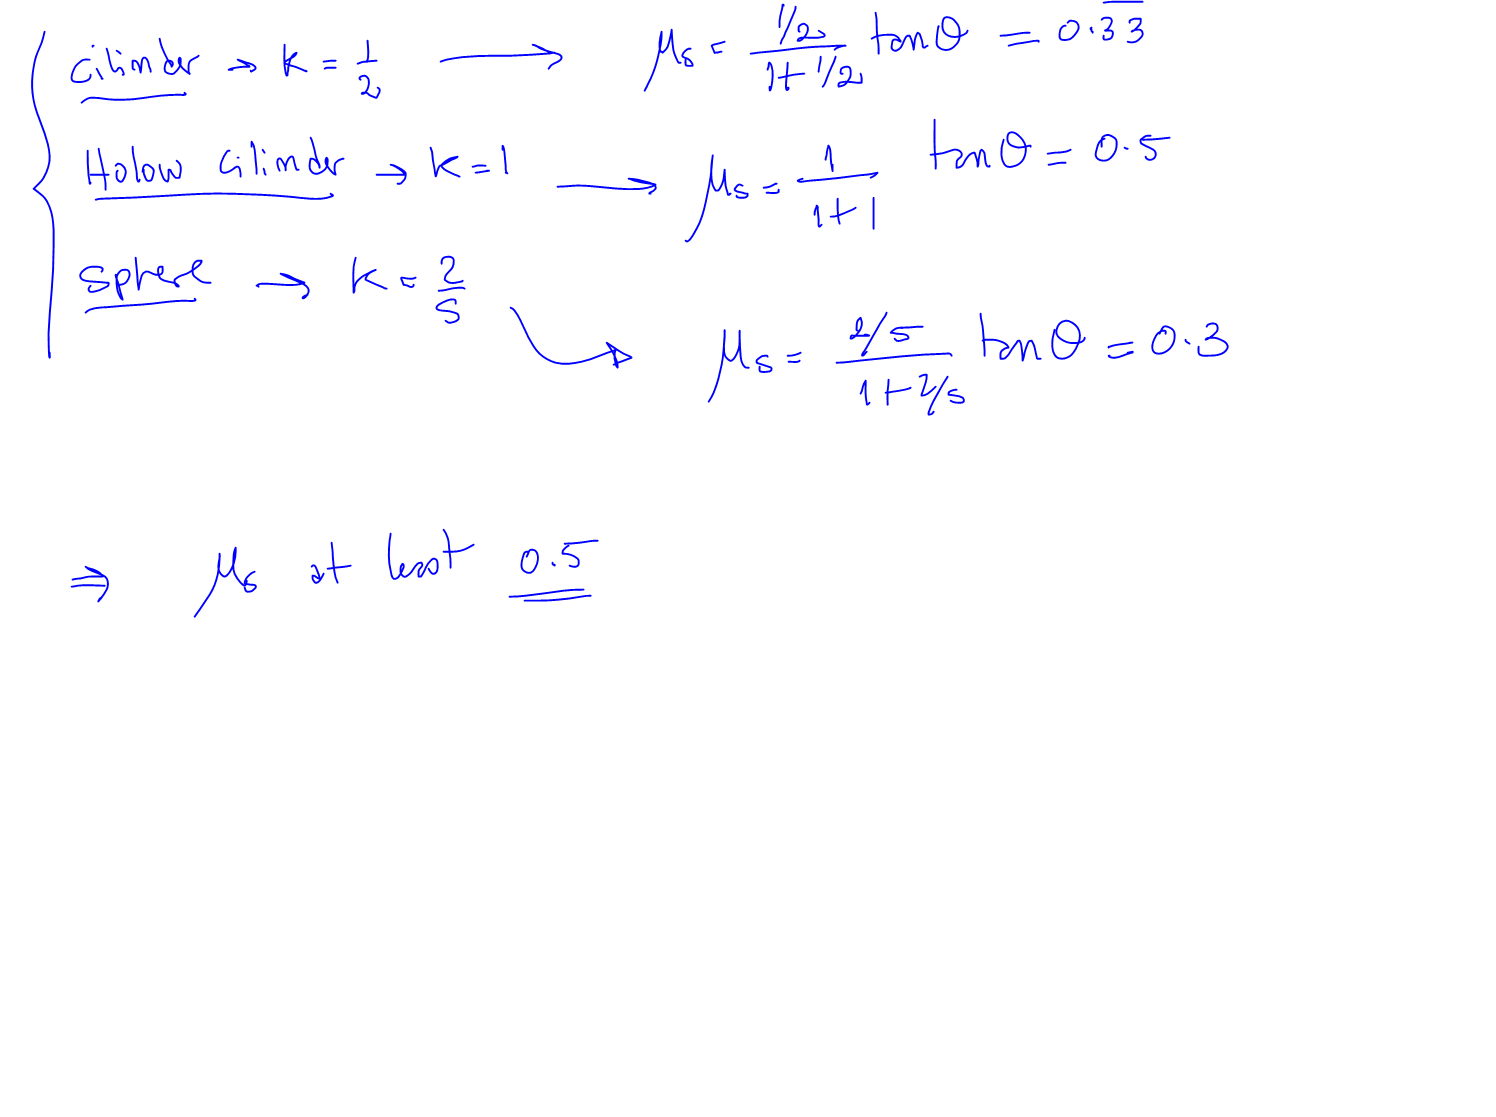 cilinder → k = 1/2 → μs = (1/2)/(1+1/2) tanθ = 0.3̅3̅
Holow cilinder → k=1 → μs = 1/(1+1) tanθ = 0.5
sphere → k = 2/5 → μs = (2/5)/(1+2/5) tanθ = 0.3
⇒ μs at least 0.5